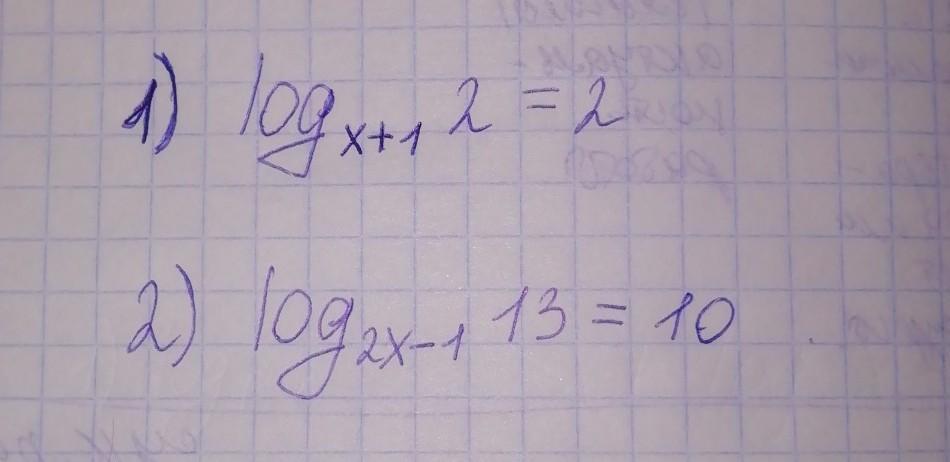 1) log_{x+1} 2 = 2
2) log_{2x-1} 13 = 10